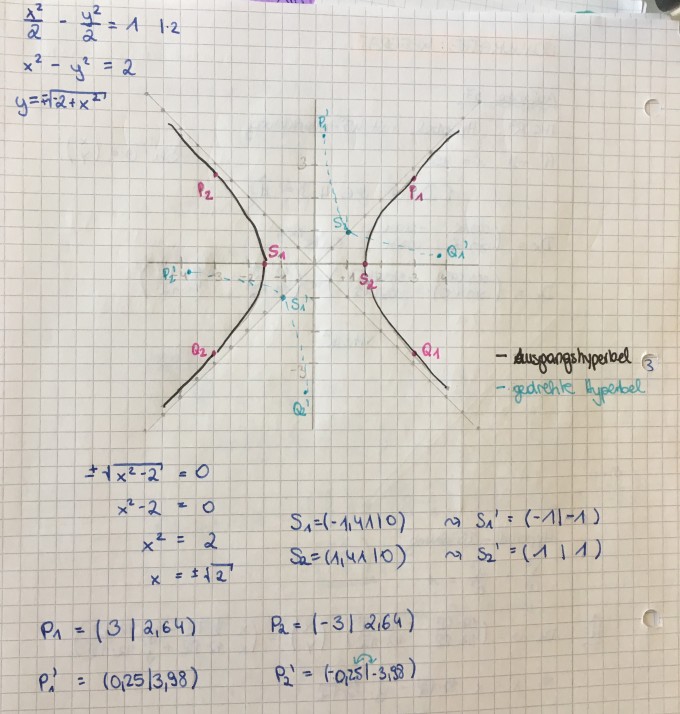 x²/2 - y²/2 = 1 |·2
x² - y² = 2
y = ±√-2+x²
P₁'
3
P₂
P₁
S₂'
S₁
Q₁'
P₂'
-3
-1
S₂
3
S₁'
Q₂
Q₁
-3
Q₂'
- Ausgangshyperbel
- gedrehte Hyperbel
±√x²-2 = 0
x²-2 = 0
x² = 2
x = ±√2
S₁=(-1,41|0) ⤳ S₁' = (-1|-1)
S₂=(1,41|0) ⤳ S₂' = (1|1)
P₁ = (3|2,64) P₂ = (-3|2,64)
P₁' = (0,25|3,98) P₂' = (-0,25|-3,98)